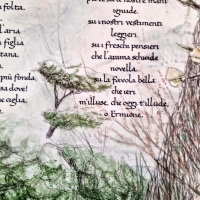 folta.
l'aria
figlia
tana.
più fonda,
sa dove!
e ciglia,
ignude,
su i nostri vestimenti
leggieri,
su i freschi pensieri
che l'anima schiude
novella,
su la favola bella
che ieri
m'illuse, che oggi t'illude,
o Ermione.